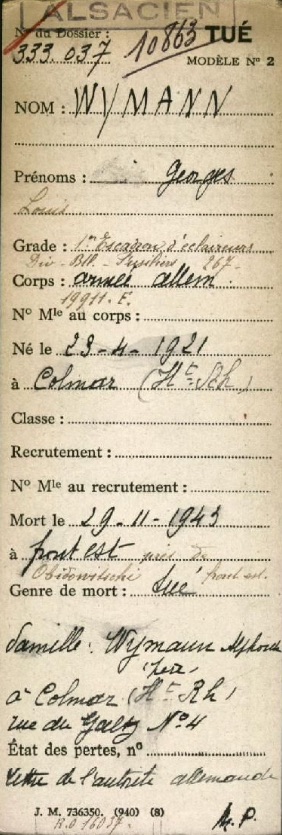 ALSACIEN
No du Dossier :
333.037
10863
TUÉ
MODÈLE No 2
NOM : WYMANN
Prénoms : Georges
Louis
Grade : 1re Escadron d'éclaireurs
Div - Btl. - Fusiliers 267 -
Corps : armée allem.
19911. E.
No Mle au corps :
Né le 23-4-1921
à Colmar (Ht Rh)
Classe :
Recrutement :
No Mle au recrutement :
Mort le 29-11-1943
à front est près de
front est.
Genre de mort : tué
famille : Wymann Alphonse
à Colmar (Ht Rh)
rue du Galtz No 4
État des pertes, no
lettre de l'autorité allemande
J. M. 736350. (940) (8)
R.O 16037.